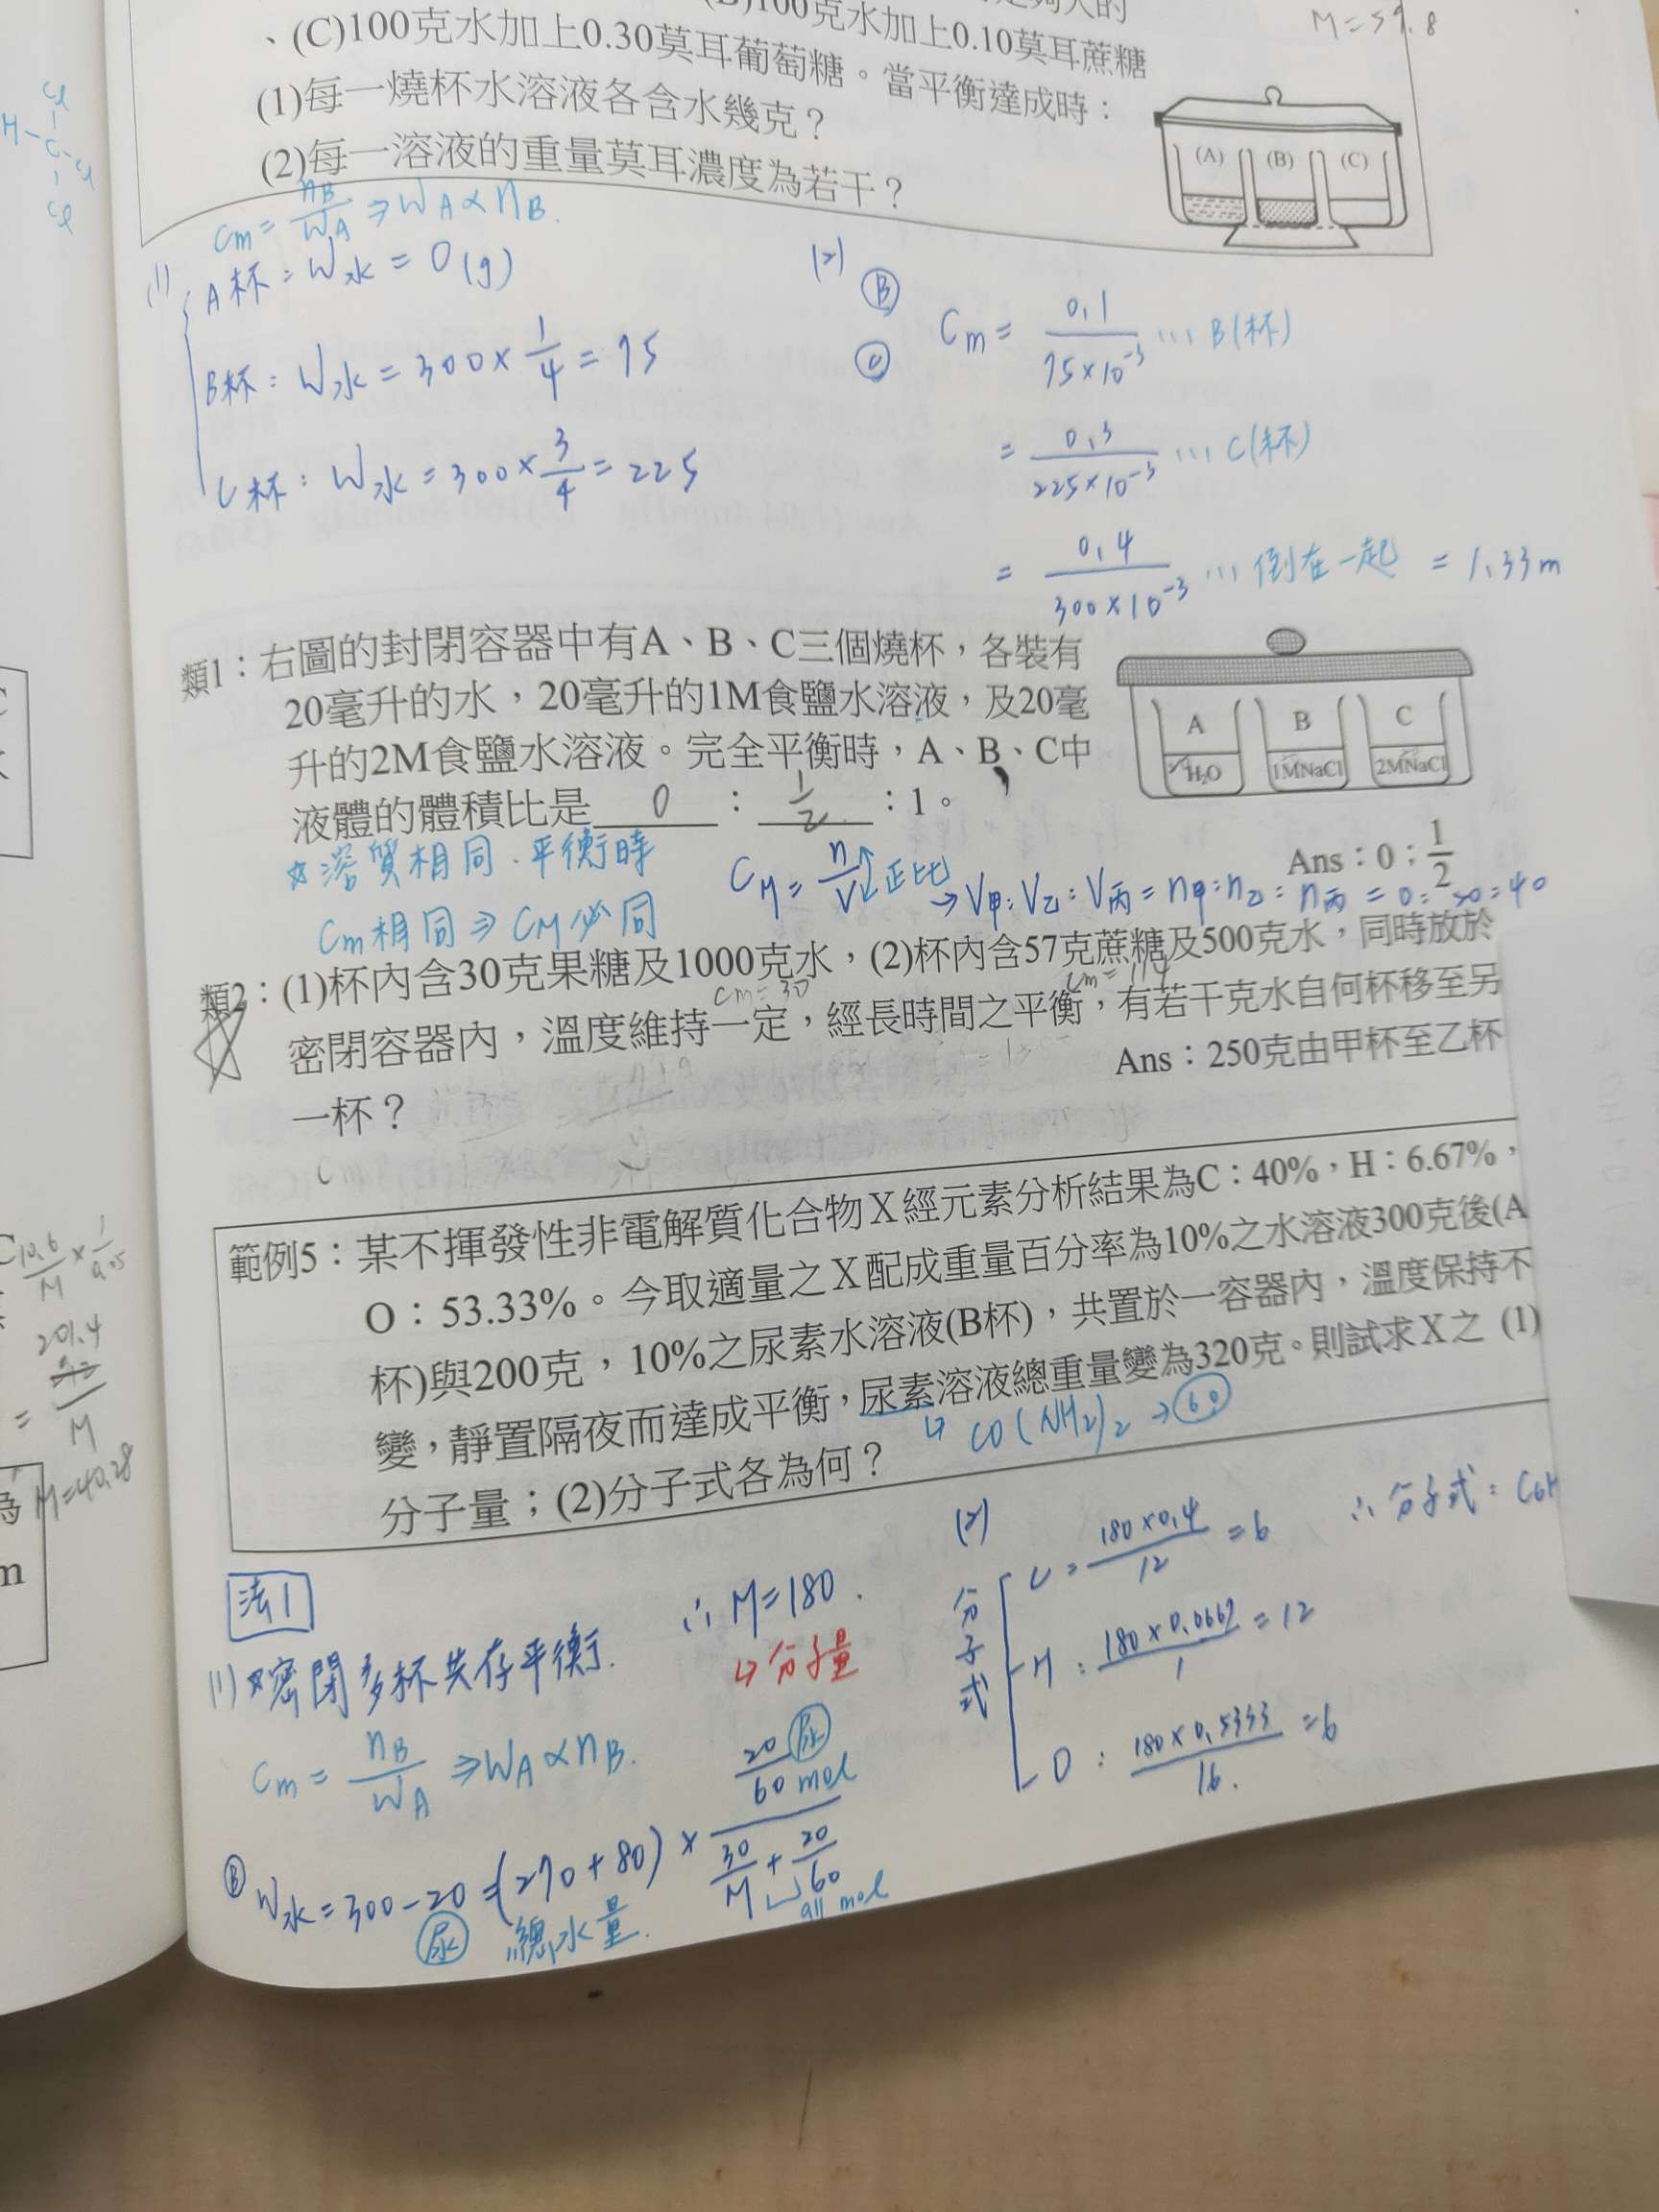 M=59.8
100克水加上0.10莫耳蔗糖
、(C)100克水加上0.30莫耳葡萄糖。當平衡達成時：
(1)每一燒杯水溶液各含水幾克？
(2)每一溶液的重量莫耳濃度為若干？
(A) (B) (C)
Cm = nB/WA ⇒ WA ∝ nB.
(1) A杯：W水 = 0(g)
B杯：W水 = 300 × 1/4 = 75
C杯：W水 = 300 × 3/4 = 225
(2) Ⓑ
Ⓒ
Cm = 0.1/75×10⁻³ … B(杯)
= 0.3/225×10⁻³ … C(杯)
= 0.4/300×10⁻³ … 倒在一起 = 1.33m
類1：右圖的封閉容器中有A、B、C三個燒杯，各裝有
20毫升的水，20毫升的1M食鹽水溶液，及20毫
升的2M食鹽水溶液。完全平衡時，A、B、C中
液體的體積比是 0 ： 1/2 ：1。
A B C
H₂O 1MNaCl 2MNaCl
Ans：0；1/2
☆溶質相同．平衡時
Cm相同⇒CM必同
CM = n/V 正比
→ V甲：V乙：V丙 = n甲：n乙：n丙 = 0：20：40
類2：(1)杯內含30克果糖及1000克水，(2)杯內含57克蔗糖及500克水，同時放於
Cm=30 Cm=114
密閉容器內，溫度維持一定，經長時間之平衡，有若干克水自何杯移至另
一杯？
Ans：250克由甲杯至乙杯
範例5：某不揮發性非電解質化合物X經元素分析結果為C：40%，H：6.67%，
O：53.33%。今取適量之X配成重量百分率為10%之水溶液300克後(A
杯)與200克，10%之尿素水溶液(B杯)，共置於一容器內，溫度保持不
變，靜置隔夜而達成平衡，尿素溶液總重量變為320克。則試求X之 (1)
分子量；(2)分子式各為何？
↳ CO(NH₂)₂ → 60
法1
(1) ☆密閉多杯共存平衡.
Cm = nB/WA ⇒ WA ∝ nB.
Ⓑ W水 = 300 - 20 = (270+80) × 20/60 / (30/M + 20/60)
尿 總水量. 尿 mol all mol
∴ M=180.
↳ 分子量
(2)
分子式
C = 180×0.4/12 = 6
H：180×0.0667/1 = 12
O：180×0.5333/16. = 6
∴ 分子式：C6H
10.6/M × 1/0.05
= 201.4/M
M=40.28
為
m